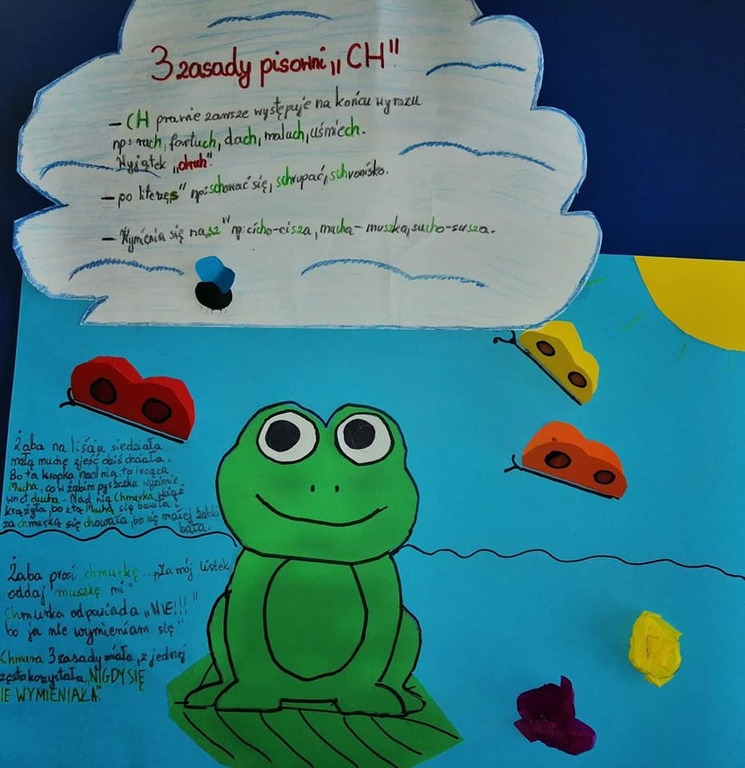 3 zasady pisowni „CH"
- CH prawie zawsze występuje na końcu wyrazu
np: ruch, fartuch, dach, maluch, uśmiech.
Wyjątek „druh".
- po literze „s" np: schować się, schrupać, schronisko.
- Wymienia się na „sz" np: cicho-cisza, mucha-muszka, sucho-susza.
Żaba na liściu siedziała
małą muchę zjeść dziś chciała.
Bo ta kropka nad nią, to lecąca
Mucha, co w żabim pyszczku wyzionie
wnet ducha. Nad nią Chmurka wciąż
krążyła, bo z tą Muchą się bawiła i
za chmurką się chowała, bo się małej żabki
bała.
Żaba prosi chmurkę... „Za mój listek
oddaj muszkę mi"
Chmurka odpowiada „NIE!!!
bo ja nie wymieniam się"
Chmura 3 zasady miała, z jednej
często korzystała „NIGDY SIĘ
NIE WYMIENIAŁA".